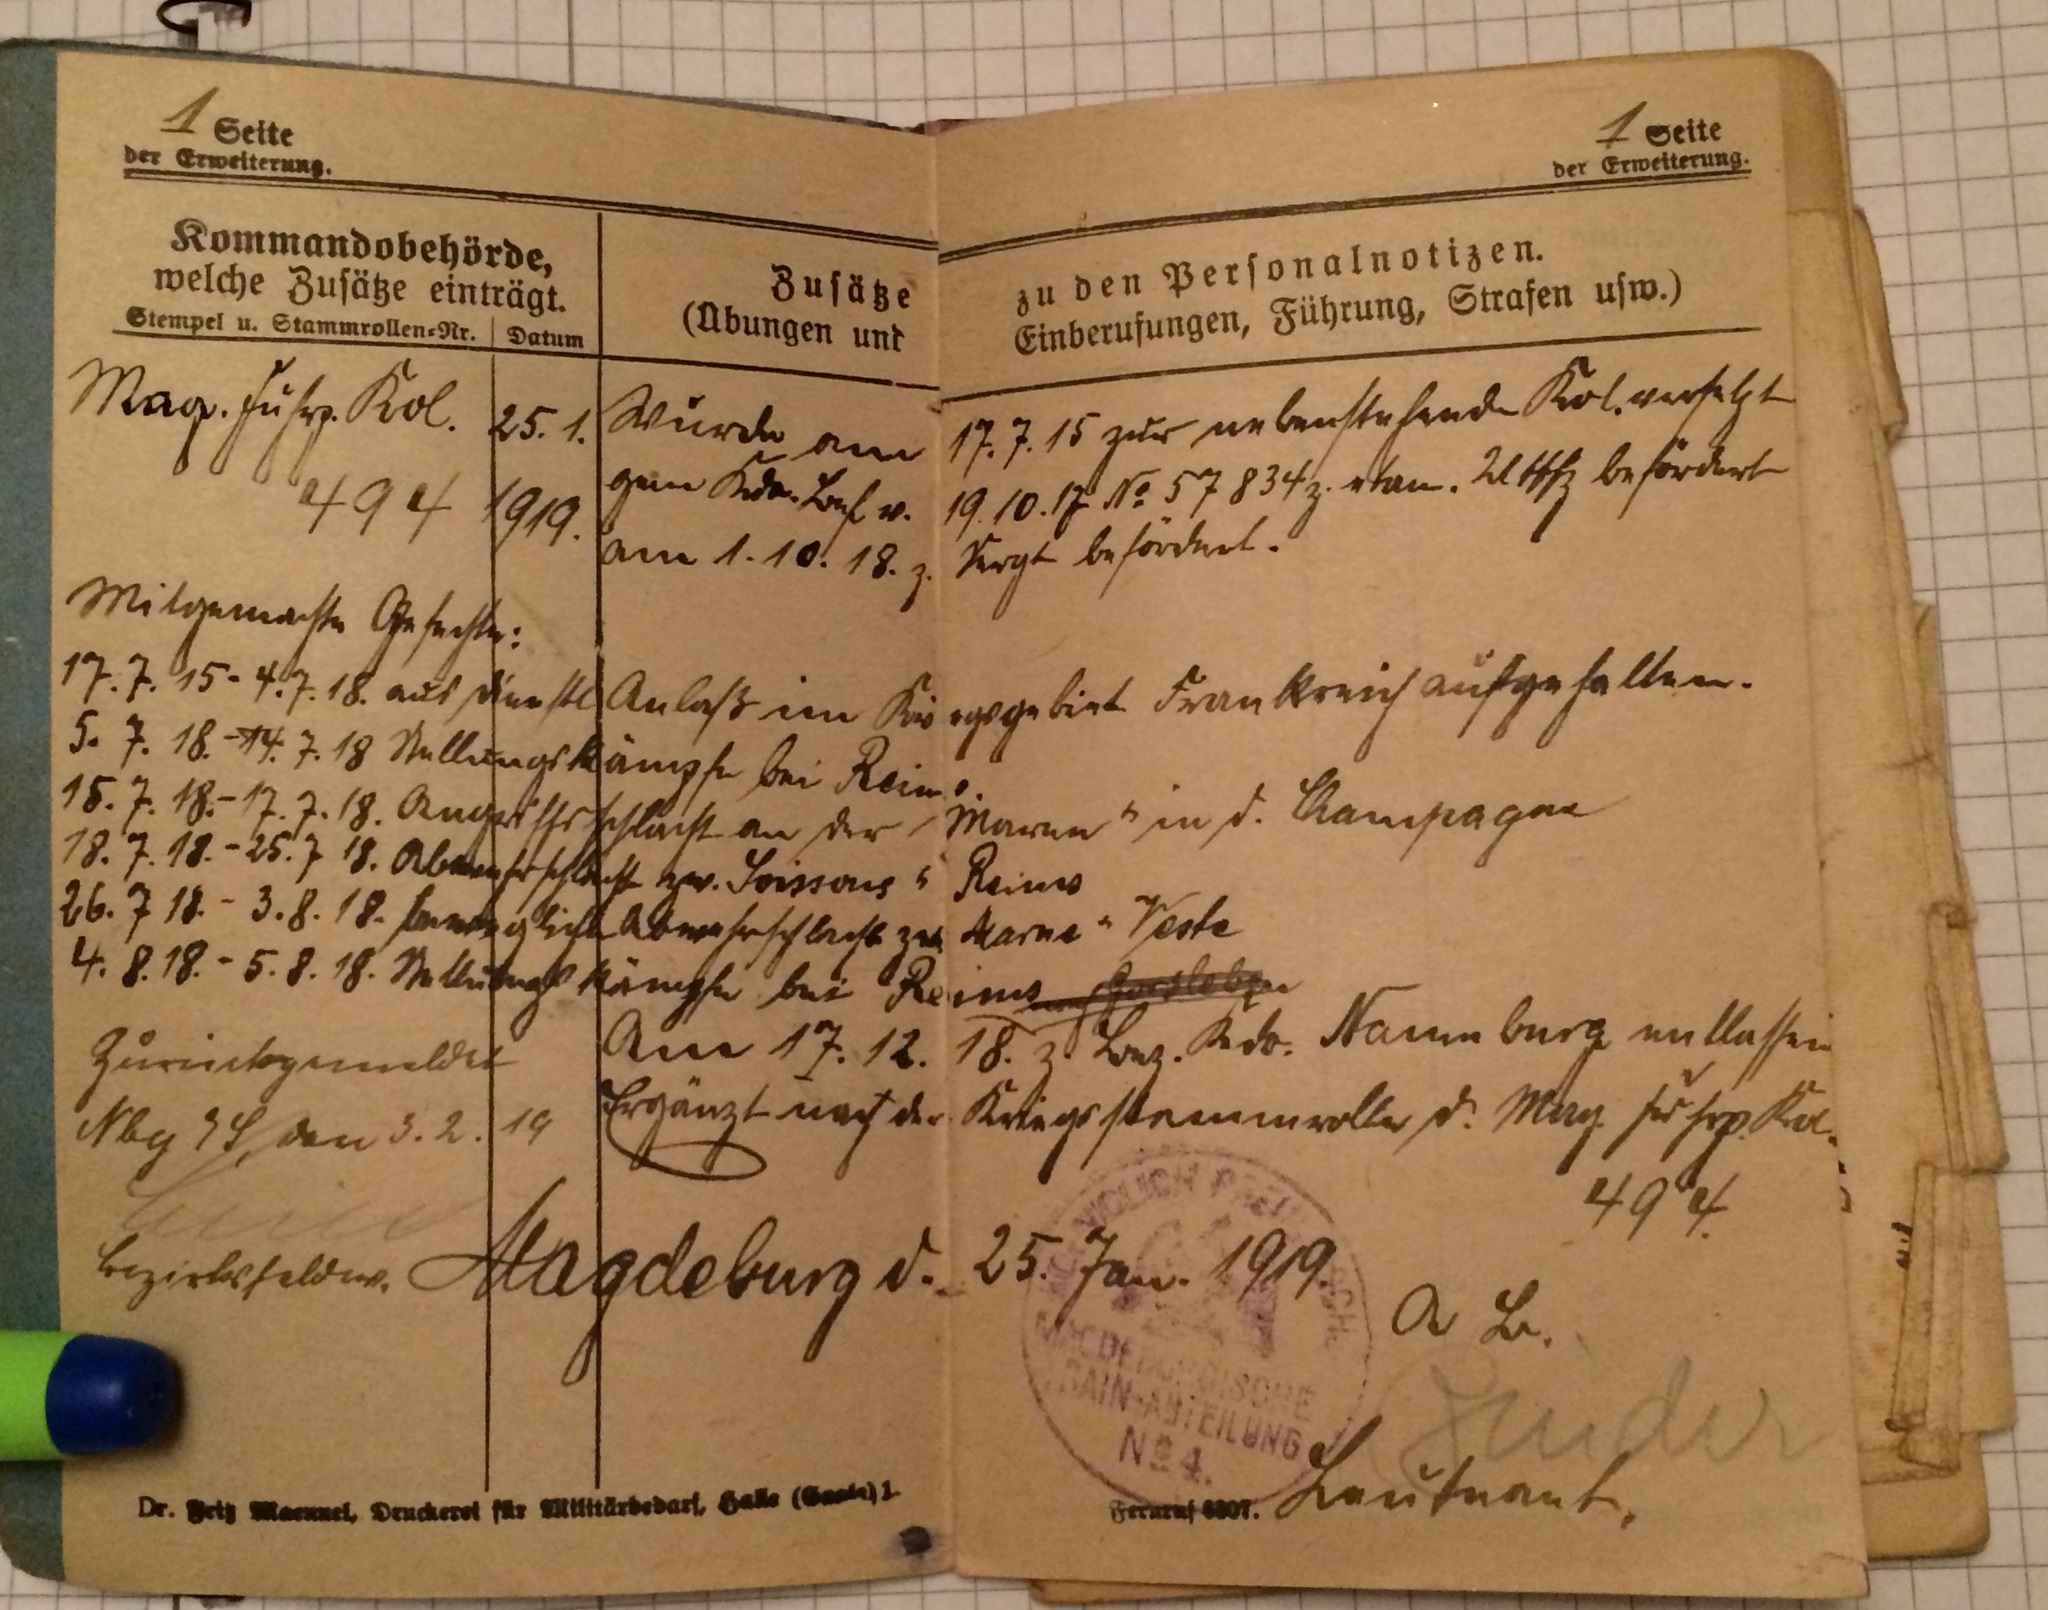 1 Seite
der Erweiterung.
1 Seite
der Erweiterung.
Kommandobehörde,
welche Zusätze einträgt.
Stempel u. Stammrollen-Nr. Datum
Zusätze zu den Personalnotizen.
(Übungen und Einberufungen, Führung, Strafen usw.)
Mag. Fuhrp. Kol. 25. 1. Wurde am 17. 7. 15 zur nebenstehende Kol. versetzt
494 1919. gem Kdo. Bef v. 19. 10. 17 No 57834 z. etm. Uffz befördert
am 1. 10. 18. z. Sergt befördert.
Mitgemachte Gefechte:
17. 7. 15 - 4. 7. 18. aus dienstl Anlaß im Kriegsgebiet Frankreich aufgehalten.
5. 7. 18. - 14. 7. 18 Stellungskämpfe bei Reims.
15. 7. 18. - 17. 7. 18. Angriffsschlacht an der Marne " in d. Champagne
18. 7. 18. - 25. 7 18. Abwehrschlacht zw. Soissons " Reims
26. 7 18. - 3. 8. 18. bewegliche Abwehrschlacht zw Marne " Vesle
4. 8. 18. - 5. 8. 18. Stellungskämpfe bei Reims
Am 17. 12. 18. z. Bez. Kdo. Naumburg entlassen
Zurückgemeldet
Ergänzt nach der Kriegsstammrolle d. Mag. Fuhrp. Kol.
494.
Nbg den 3. 2. 19
Bezirksfeldw.
Magdeburg d. 25. Jan. 1919.
A B.
Leutnant.
KÖNIGLICH PREUSSISCHE
MAGDEBURGISCHE
TRAIN-ABTEILUNG
No 4.
Dr. Fritz Maennel, Druckerei für Militärbedarf, Halle (Saale) 1. Fernruf